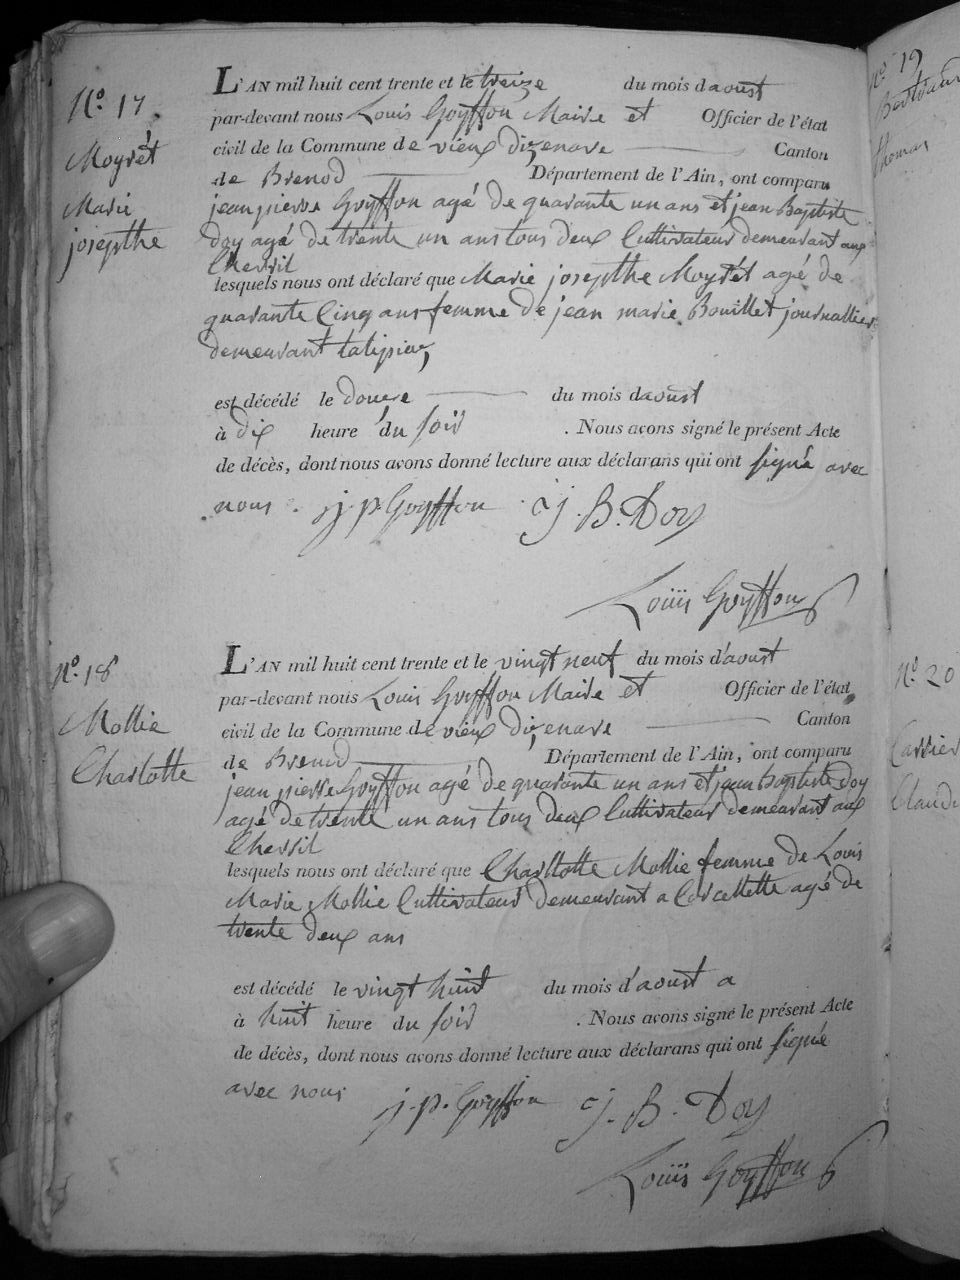 N.º 17
Moyrét
Marie
josepthe
L'AN mil huit cent trente et le treize du mois daoust
par-devant nous Louis Goyffon Maire et Officier de l'état
civil de la Commune de vieux dizenave Canton
de Brenod Département de l'Ain, ont comparu
jean pierre Goyffon agé de quarante un ans et jean Baptiste
Doy agé de trente un ans tous deux Cultivateur demeurant aux
Chevril
lesquels nous ont déclaré que Marie josepthe Moyrét agé de
quarante Cinq ans femme de jean marie Bouillet journallier
demeurant
est décédé le douze du mois daoust
à dix heure du soir . Nous avons signé le présent Acte
de décès, dont nous avons donné lecture aux déclarans qui ont signé avec
nous . j. p. Goyffon J. B. Doy
Louis Goyffon
N.º 18
Mollie
Charlotte
L'AN mil huit cent trente et le vingt neuf du mois d'aoust
par-devant nous Louis Goyffon Maire et Officier de l'état
civil de la Commune de vieux dizenave Canton
de Brenod Département de l'Ain, ont comparu
jean pierre Goyffon agé de quarante un ans et jean Baptiste Doy
agé de trente un ans tous deux Cultivateur demeurant aux
Chevril
lesquels nous ont déclaré que Charllotte Mollie femme de Louis
Marie Mollie Cultivateur demeurant a Corcellette agé de
trente deux ans
est décédé le vingt huit du mois d'aoust a
à huit heure du soir . Nous avons signé le présent Acte
de décès, dont nous avons donné lecture aux déclarans qui ont signée
avec nous j. p. Goyffon J. B. Doy
Louis Goyffon
N.º 19
thomas
N.º 20
Carrier